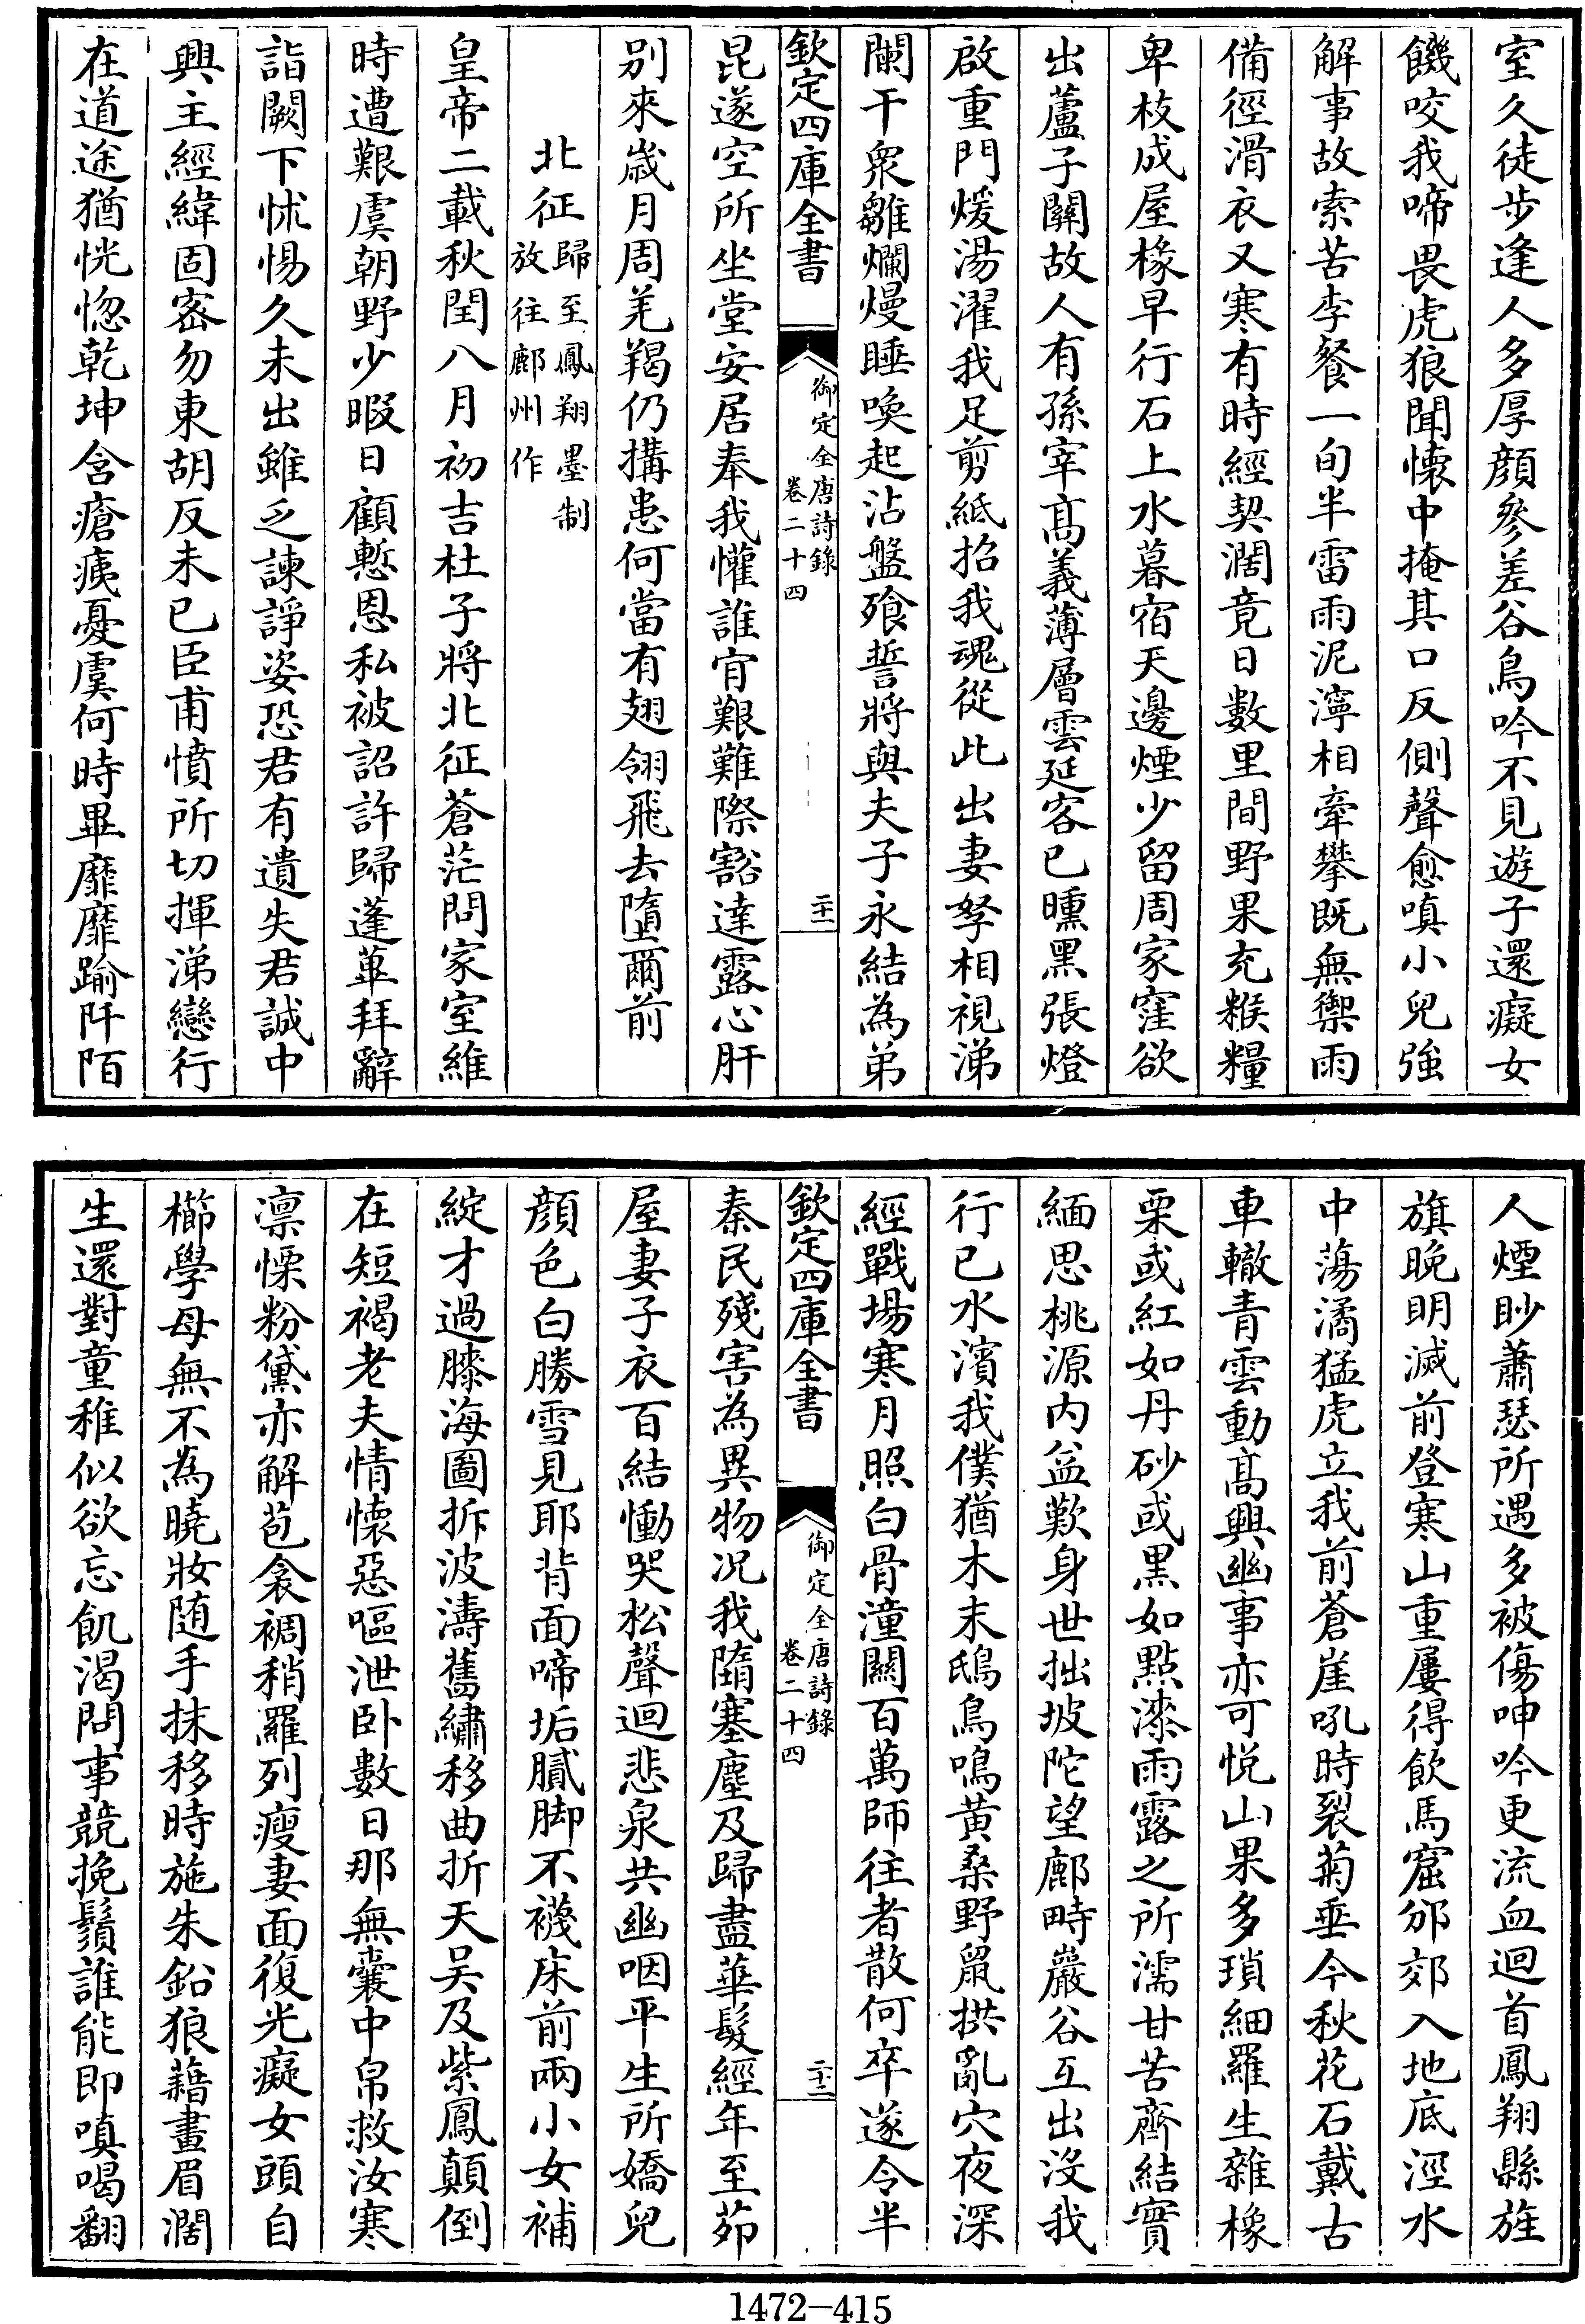 室久徒步逢人多厚顔參差谷鳥吟不見遊子還癡女
饑咬我啼畏虎狼聞懷中掩其口反側聲愈嗔小兒強
解事故索苦李餐一旬半雷雨泥濘相牽攀既無禦雨
備徑滑衣又寒有時經契濶竟日數里間野果充糇糧
卑枝成屋椽早行石上水暮宿天邊煙少留周家窪欲
出蘆子關故人有孫宰髙義薄層雲延客已曛黑張燈
啟重門煖湯濯我足剪紙招我魂從此出妻孥相視涕
闌干衆雛爛熳睡喚起沾盤飱誓將與夫子永結為弟
欽定四庫全書
御定全唐詩錄
卷二十四
二十一
昆遂空所坐堂安居奉我懽誰肯艱難際豁達露心肝
别來歲月周羌羯仍搆患何當有翅翎飛去墮爾前
北征
歸至鳳翔墨制
放往鄜州作
皇帝二載秋閏八月初吉杜子將北征蒼茫問家室維
時遭艱虞朝野少暇日顧慙恩私被詔許歸蓬蓽拜辭
詣闕下怵惕久未出雖乏諫諍姿恐君有遺失君誠中
興主經緯固宻勿東胡反未已臣甫憤所切揮涕戀行
在道途猶恍惚乾坤含瘡痍憂虞何時畢靡靡踰阡陌
人煙眇蕭瑟所遇多被傷呻吟更流血迴首鳳翔縣旌
旗晚明滅前登寒山重屢得飲馬窟邠郊入地底涇水
中蕩潏猛虎立我前蒼崖吼時裂菊垂今秋花石戴古
車轍青雲動髙興幽事亦可悦山果多瑣細羅生雜橡
栗或紅如丹砂或黒如點漆雨露之所濡甘苦齊結實
緬思桃源内益歎身世拙坡陀望鄜畤巖谷互出沒我
行已水濱我僕猶木末鴟鳥鳴黃桑野鼠拱亂穴夜深
經戰場寒月照白骨潼關百萬師往者散何卒遂令半
欽定四庫全書
御定全唐詩錄
卷二十四
二十二
秦民殘害為異物况我隋塞塵及歸盡華髮經年至茆
屋妻子衣百結慟哭松聲迴悲泉共幽咽平生所嬌兒
顔色白勝雪見耶背面啼垢膩脚不襪床前兩小女補
綻才過膝海圖拆波濤舊繡移曲折天吴及紫鳳顛倒
在短褐老夫情懷惡嘔泄卧數日那無囊中帛救汝寒
凛慄粉黛亦解苞衾裯稍羅列瘦妻面復光癡女頭自
櫛學母無不為曉妝随手抹移時施朱鉛狼藉畫眉濶
生還對童稚似欲忘飢渇問事競挽鬚誰能即嗔喝翻
1472—415